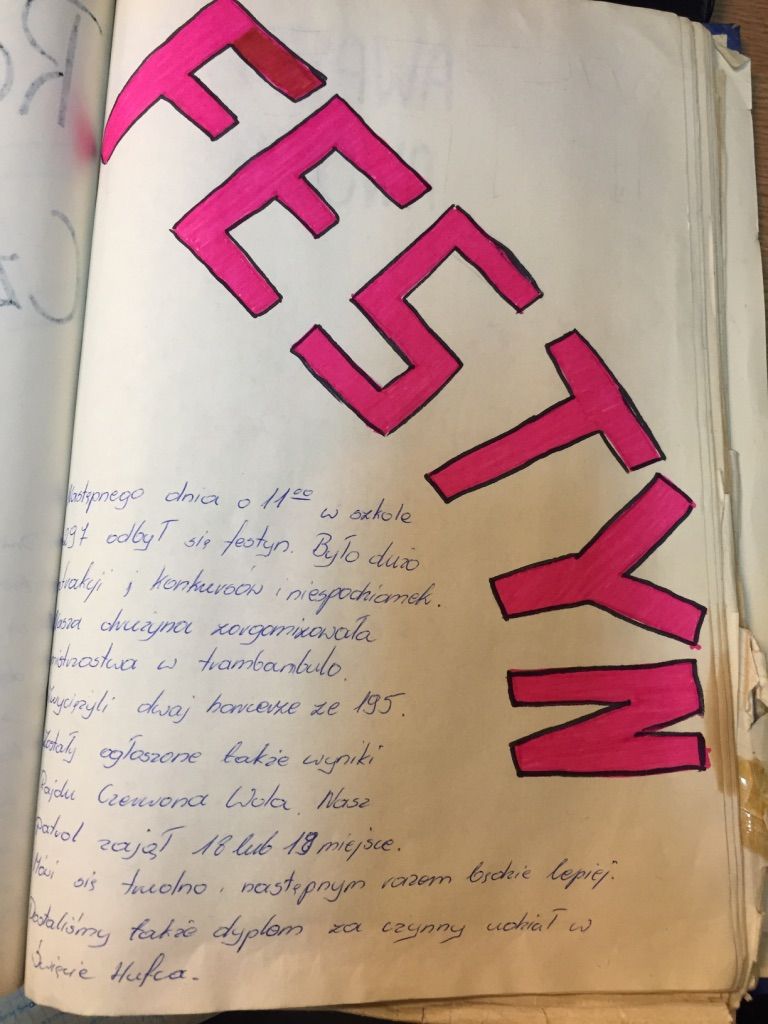 FESTYN
Następnego dnia o 11⁰⁰ w szkole
297 odbył się festyn. Było dużo
atrakcji, konkursów i niespodzianek.
Nasza drużyna zorganizowała
mistrzostwa w trambambulo.
Zwyciężyli dwaj harcerze ze 195.
Zostały ogłoszone także wyniki
Rajdu Czerwona Wola. Nasz
Patrol zajął 18 lub 19 miejsce.
Mówi się trudno, następnym razem będzie lepiej.
Dostaliśmy także dyplom za czynny udział w
Święcie Hufca.